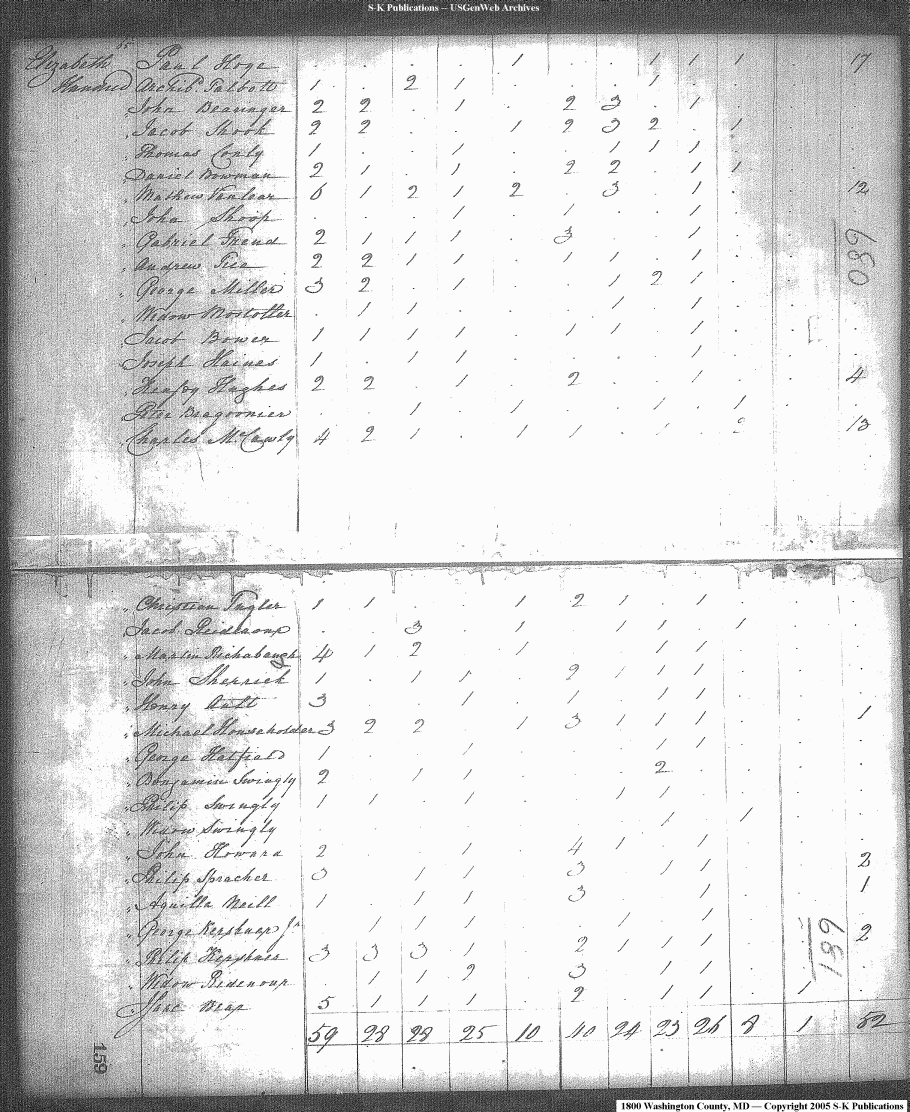 S-K Publications -- USGenWeb Archives
Elizabeth Paul Hoge . . . . 1 . . 1 1 1 . 17
Hundred Archib. Talbott 1 . 2 1 . . . 1 . . . .
John 2 2 . 1 . 2 3 . 1 . . .
Jacob Shook 2 2 . . 1 2 3 2 . 1 . .
Thomas Conly 1 . . 1 . . 1 1 1 . . .
Daniel Bowman 2 1 . 1 . 2 2 . 1 1 . .
Mathew Vanlear 6 1 2 1 2 . 3 . 1 . . 12
John Shoop . . . 1 . 1 . . 1 . . .
Gabriel Friend 2 1 1 1 . 3 . . 1 . . .
Andrew 2 2 1 1 . 1 1 . 1 . . .
George Miller 3 2 . 1 . . 1 2 1 . . .
Widow . 1 1 . . . 1 . 1 . . .
Jacob Bower 1 1 1 1 . 1 1 . 1 . . .
Joseph Haines 1 . 1 1 . . . . 1 . . .
Hughes 2 2 . 1 . 2 . . 1 . . 4
Peter . . 1 . 1 . . 1 . 1 . .
Charles McCawly 4 2 1 . 1 1 . 1 . 2 . 13
680
Christian 1 1 . . 1 2 1 . 1 . . .
Jacob . . 3 . 1 . 1 1 . 1 . .
Martin Richabaugh 4 1 2 . 1 . . 1 1 . . .
John Sherrick 1 . 1 1 . 2 1 1 1 . . .
Henry Ault 3 . . 1 . 1 . 1 1 . . .
Michael Householder 3 2 2 . 1 3 1 1 1 . . 1
George Hatfield 1 . . 1 . . . 1 1 . . .
Benjamin Swingly 2 . 1 1 . . . 2 . . . .
Philip Swingly 1 1 . 1 . . 1 1 . . . .
Widow Swingly . . . . . . . 1 . 1 . .
John Howard 2 . . 1 . 4 1 . 1 . . .
Philip Spracher 3 . 1 1 . 3 . 1 1 . . 2
Aquilla Neill 1 . 1 1 . 3 . . 1 . . 1
George Kershner Jr . 1 1 1 . . 1 . 1 . . .
Philip Kershner 3 3 3 1 . 2 1 1 1 . . 2
Widow Ridenour . 1 1 2 . 3 . 1 1 . . .
Isaac 5 1 1 1 . 2 . 1 1 . 1 .
59 28 28 25 10 40 24 23 26 8 1 52
189
159
1800 Washington County, MD — Copyright 2005 S-K Publications